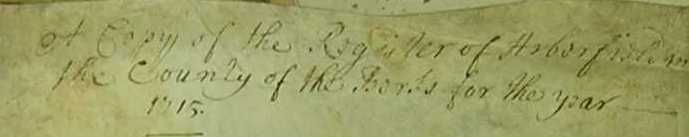 A Copy of the Register of Arborfield in
the County of the Berks for the year
1715.